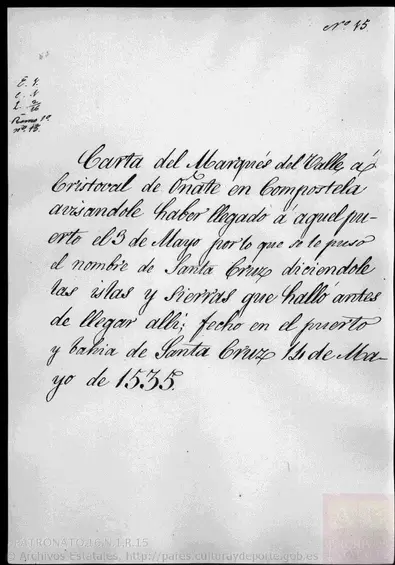 Nº 45.
E. 2
C. 1
L. 2/16
Ramo 1º
nº 15.
Carta del Marqués del Valle á
Cristoval de Oñate en Compostela
avisandole haber llegado á aquel pu-
erto el 3 de Mayo por lo que se le puso
el nombre de Santa Cruz diciendole
las islas y sierras que halló antes
de llegar alli; fecho en el puerto
y bahia de Santa Cruz 14 de Ma-
yo de 1535.
PATRONATO,16,N.1,R.15
© Archivos Estatales, http://pares.culturaydeporte.gob.es